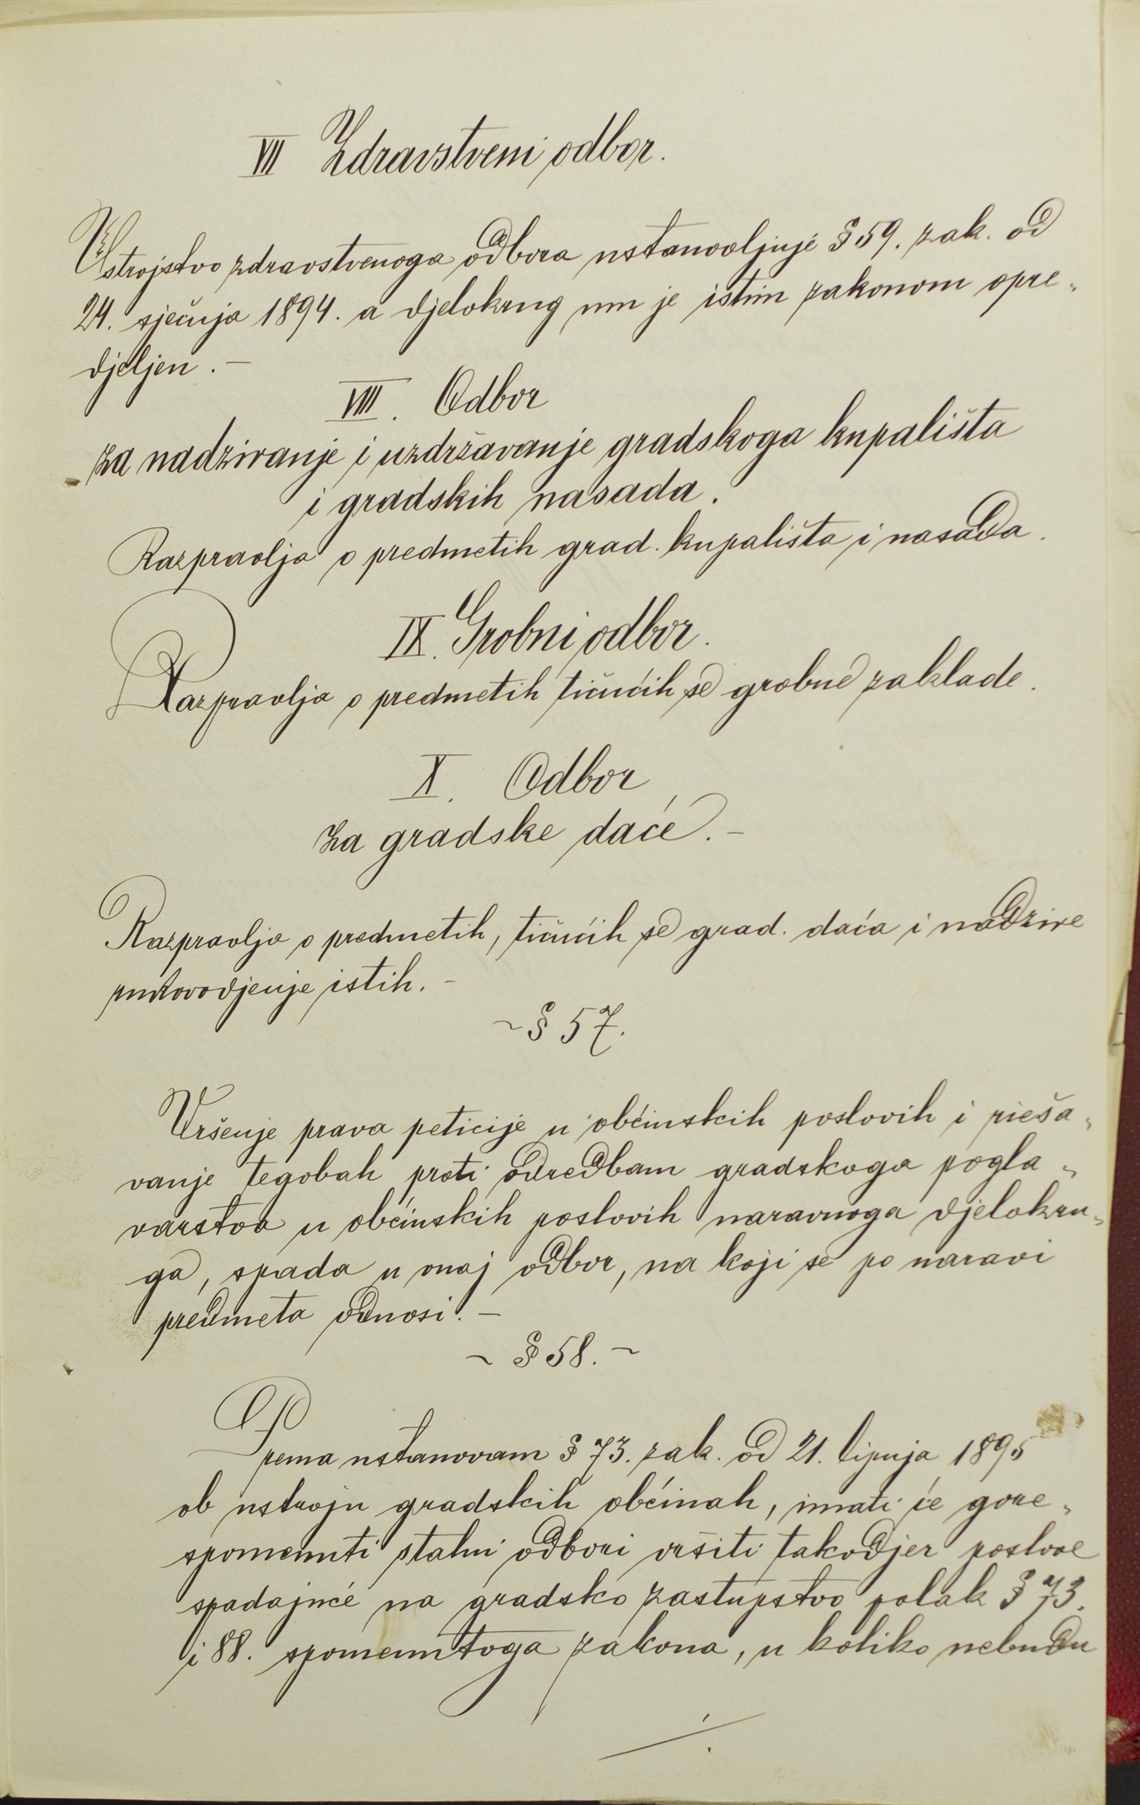 VII Zdravstveni odbor.
Ustrojstvo zdravstvenoga odbora ustanovljuje § 59. zak. od
24. sječnja 1894. a djelokrug mu je istim zakonom opre„
djeljen. —
VIII. Odbor
za nadziranje i uzdržavanje gradskoga kupališta
i gradskih nasada.
Razpravlja o predmetih grad. kupališta i nasada.
IX. Grobni odbor.
Razpravlja o predmetih tičućih se grobne zaklade.
X. Odbor
za gradske daće. —
Razpravlja o predmetih, tičućih se grad. daća i nadzire
rukovodjenje istih. —
~ § 57.
Vršenje prava peticije u občinskih poslovih i rieša„
vanje tegobah proti odredbam gradskoga pogla„
varstva u občinskih poslovih naravnoga djelokru„
ga, spada u onaj odbor, na koji se po naravi
predmeta odnosi. —
~ § 58. ~
Prema ustanovam § 73. zak. od 21. lipnja 1895
ob ustroju gradskih občinah, imati će gore„
spomenuti stalni odbori vršiti takodjer poslove
spadajuće na gradsko zastupstvo polak § 73.
i 88. spomenutoga zakona, u koliko nebudu
./.